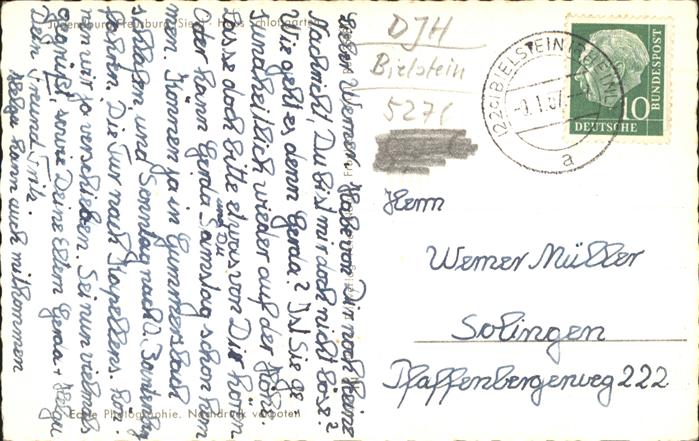 Jugendburg Freusburg/Sieg
Schloßgarten
Lieber Werner! Habe von Dir noch keine
Nachricht. Du bist mir doch nicht böse?
Wie geht es denn Gerda? Ist Sie ge
sundheitlich wieder auf der Höhe.
Lasse doch bitte etwas von Dir hören
Oder kann Gerda und Du Samstag schon kom
men. Können ja in Gummersbach
schlafen und Sonntag nach
fahren. Die Tur nach kön
nen wir ja verschieben. Sei nun vielmals
gegrüßt, sowie Deine Eltern Gerda +
Dein Freund Fritz.
kann auch mitkommen
Echte Photographie. Nachdruck verboten
DJH
Bielstein
527
(22c) BIELSTEIN (RHEINL)
a
10
DEUTSCHE
BUNDESPOST
Herrn
Werner Müller
Solingen
Pfaffenbergerweg 222